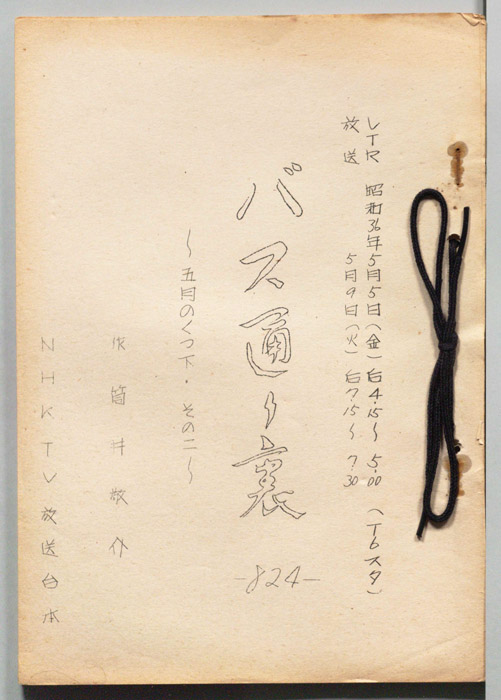 VTR 昭和36年5月5日(金)后4.15〜5.00 (T6スタ)
放送 5月9日(火)后7.15〜7.30
バス通り裏
-824-
〜五月のくつ下・その二〜
作 筒井敬介
NHK TV 放送台本